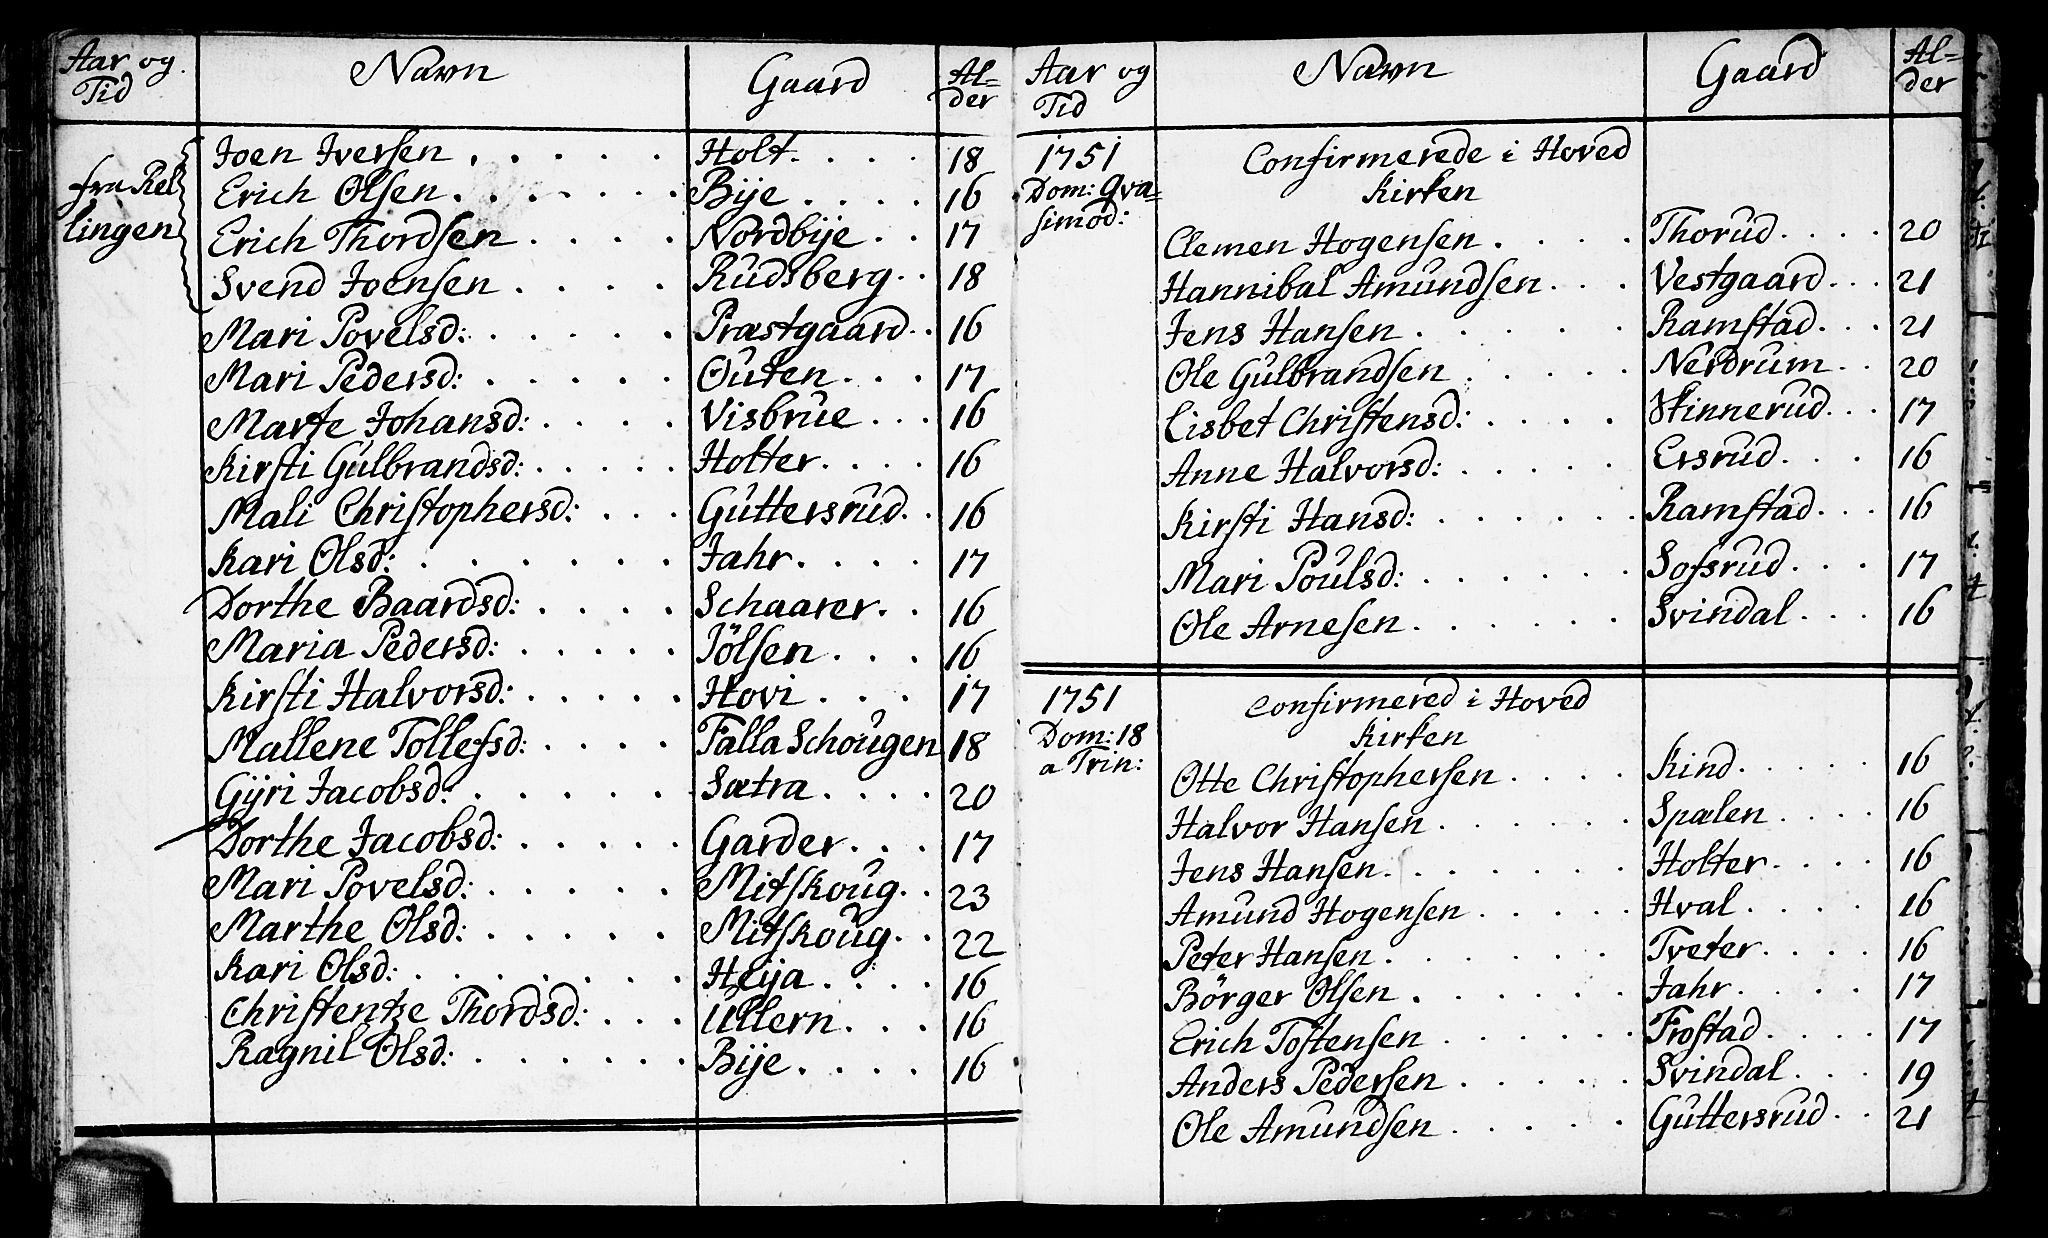 Aar og Tid Navn Gaard Al-der
fra Rel-lingen
Joen Iversen Holt 18
Erich Olsen Bije 16
Erich Thordsen Nordbije 17
Svend Joensen Rudsberg 18
Mari Povelsd: Præstgaard 16
Mari Pedersd: Outen 17
Marte Johansd: Visbrue 16
Kirsti Gulbrandsd: Holter 16
Mali Christophersd: Guttersrud 16
Kari Olsd: Jahr 17
Dorthe Baardsd: Schaarer 16
Maria Pedersd: Jölsen 16
Kirsti Halvorsd: Hovi 17
Mallene Tollefsd: Falla Schougen 18
Gyri Jacobsd: Sætra 20
Dorthe Jacobsd: Garder 17
Mari Povelsd: Mitskoug 23
Marthe Olsd: Mitskoug 22
Kari Olsd: Heija 16
Christentze Thordsd: Ullern 16
Ragnil Olsd: Bije 16
Aar og Tid Navn Gaard Al-der
1751 Confirmerede i Hoved
Dom: Qva- Kirken
simod:
Clemen Hogensen Thorud 20
Hannibal Amundsen Vestgaard 21
Jens Hansen Ramstad 21
Ole Gulbrandsen Nerdrum 20
Lisbet Christensd: Skinnerud 17
Anne Halvorsd: Ersrud 16
Kirsti Hansd: Ramstad 16
Mari Poulsd: Sofsrud 17
Ole Arnesen Svindal 16
1751 Confirmered i Hoved
Dom: 18 Kirken
a Trin:
Otte Christophersen Kind 16
Halvor Hansen Spælen 16
Jens Hansen Holter 16
Amund Hogensen Hval 16
Peter Hansen Tveter 16
Börger Olsen Jahr 17
Erich Tostensen Frostad 17
Anders Pedersen Svindal 19
Ole Amundsen Guttersrud 21